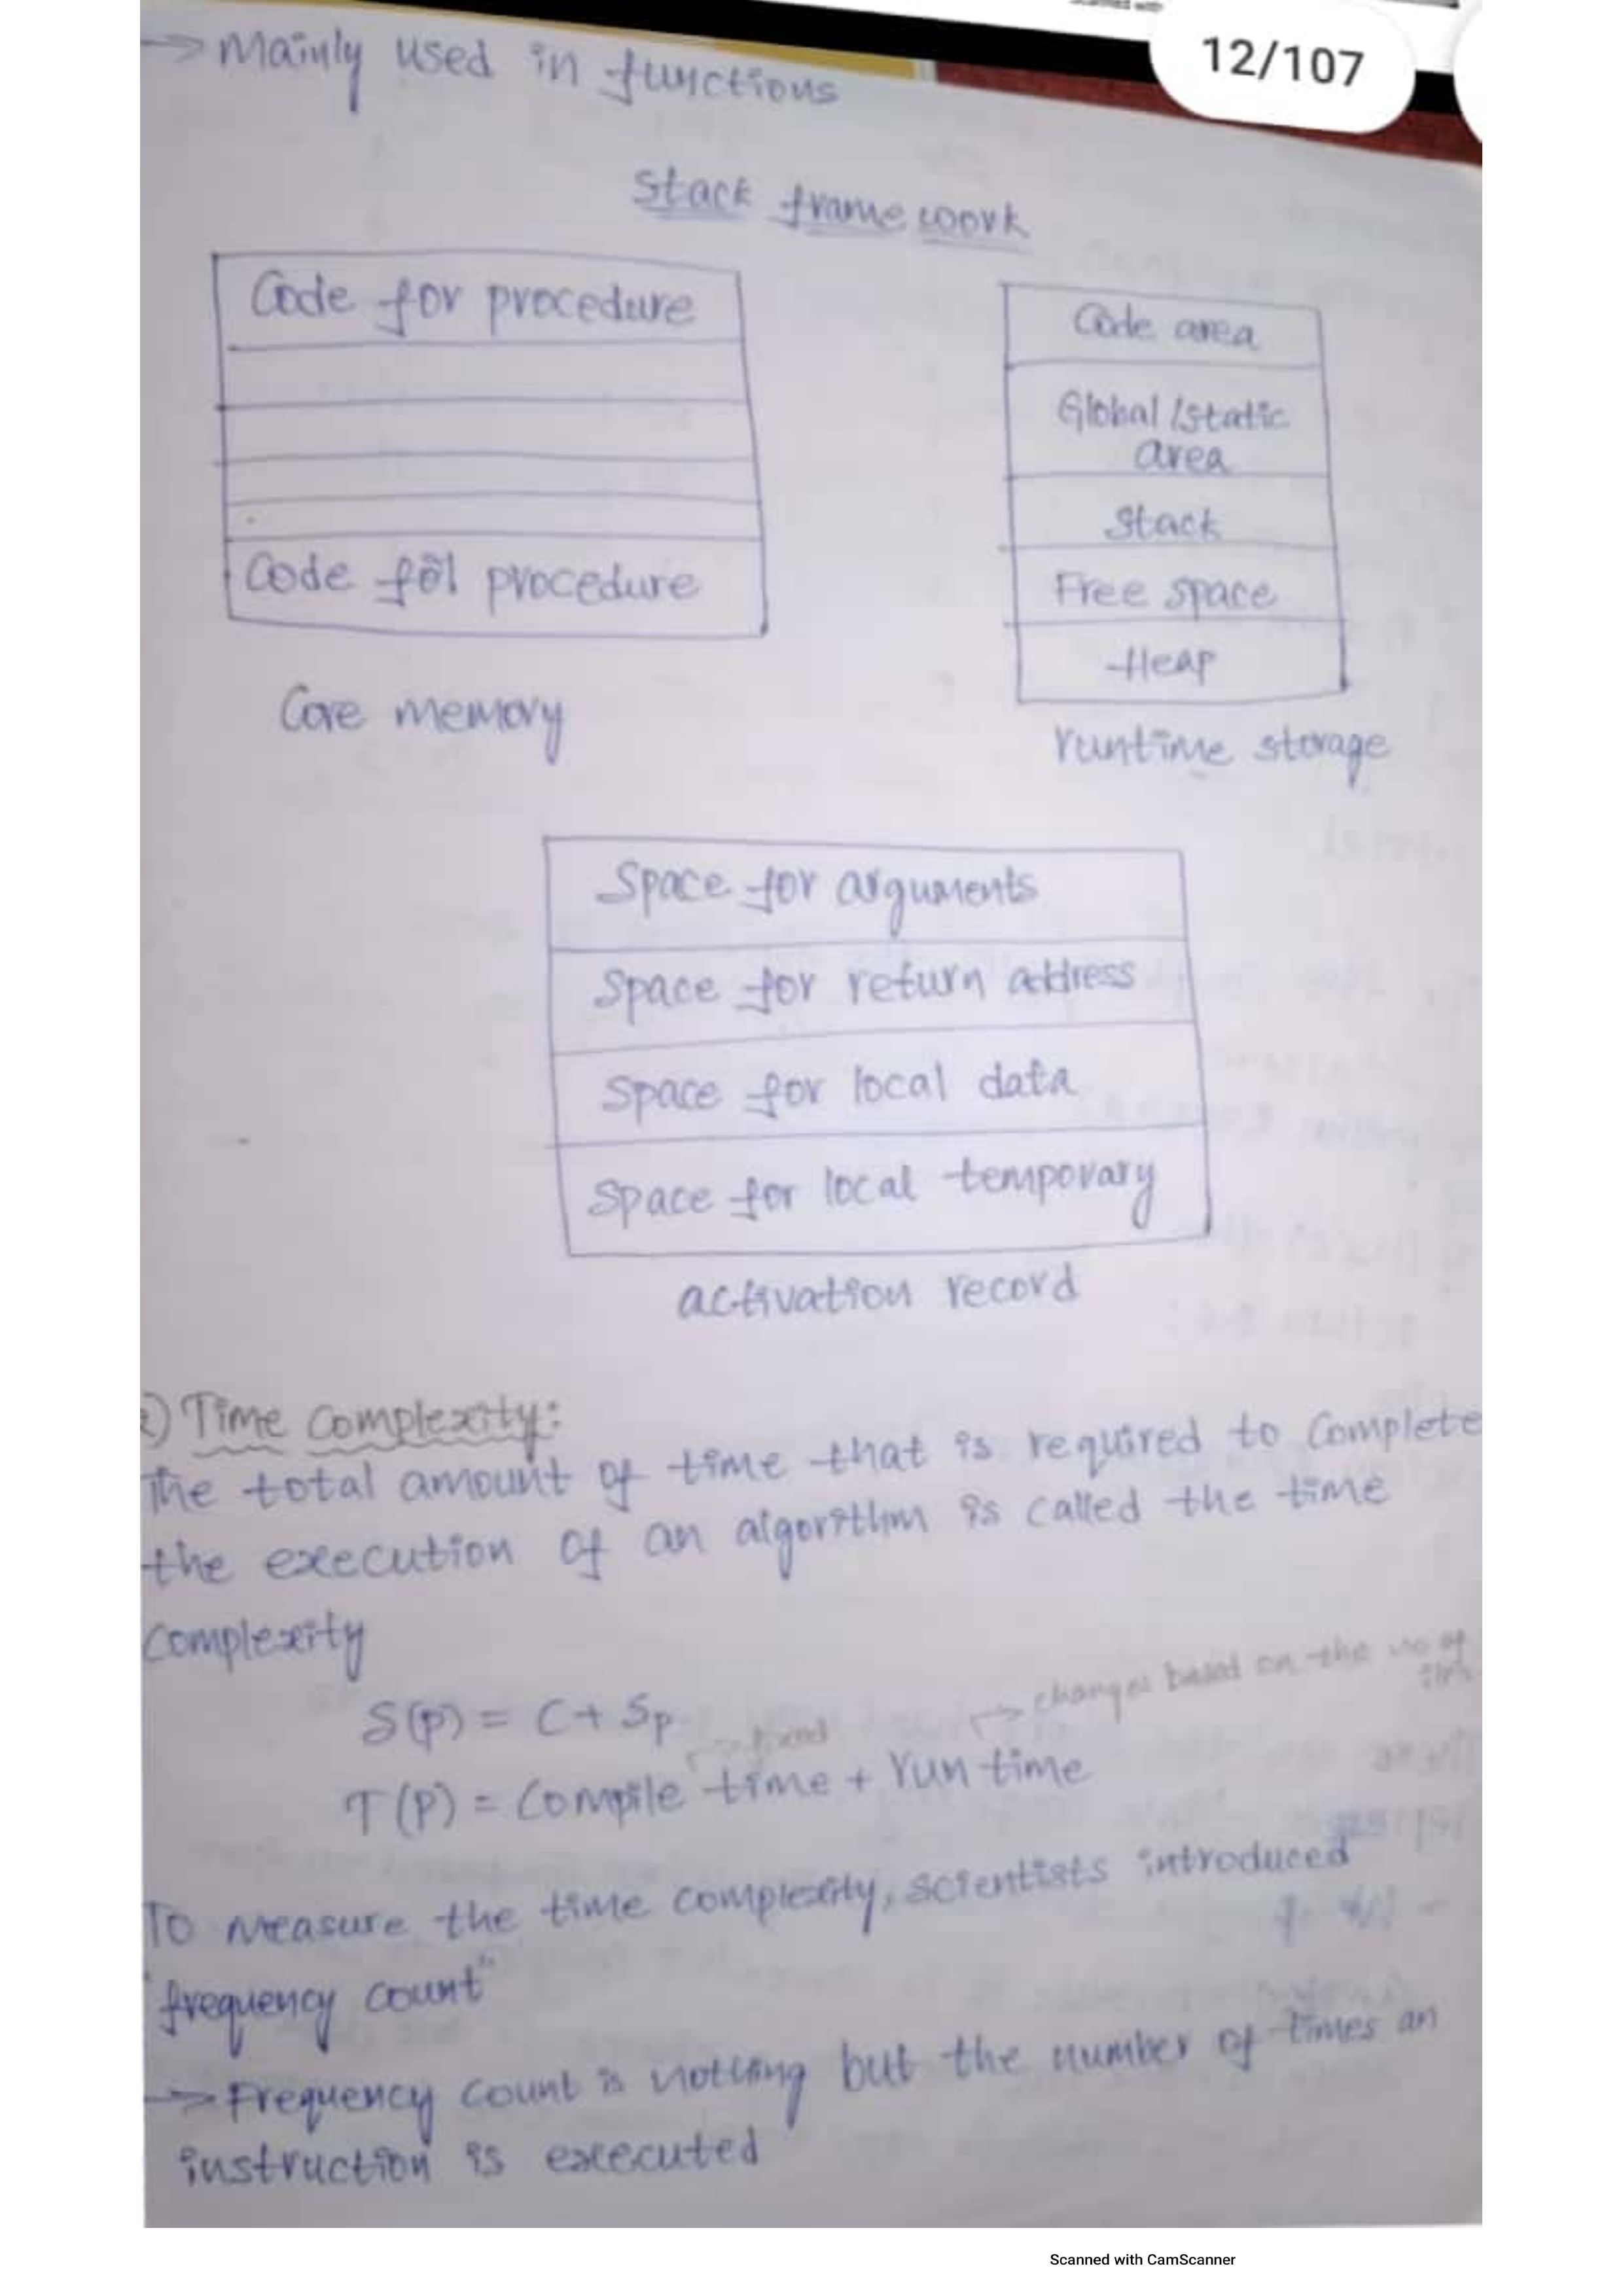 12/107
→ Mainly used in functions
Stack frame work
Code for procedure
Code for procedure
Core memory
Code area
Global/static
area
Stack
Free space
Heap
runtime storage
Space for arguments
Space for return address
Space for local data
Space for local temporary
activation record
Time Complexity:
The total amount of time that is required to Complete
the execution of an algorithm is called the time
Complexity
S(P) = C + Sp
→ fixed
→ changes based on the no of
T(P) = Compile time + run time
To measure the time complexity, scientists introduced
"frequency count"
→ Frequency count is nothing but the number of times an
instruction is executed
Scanned with CamScanner